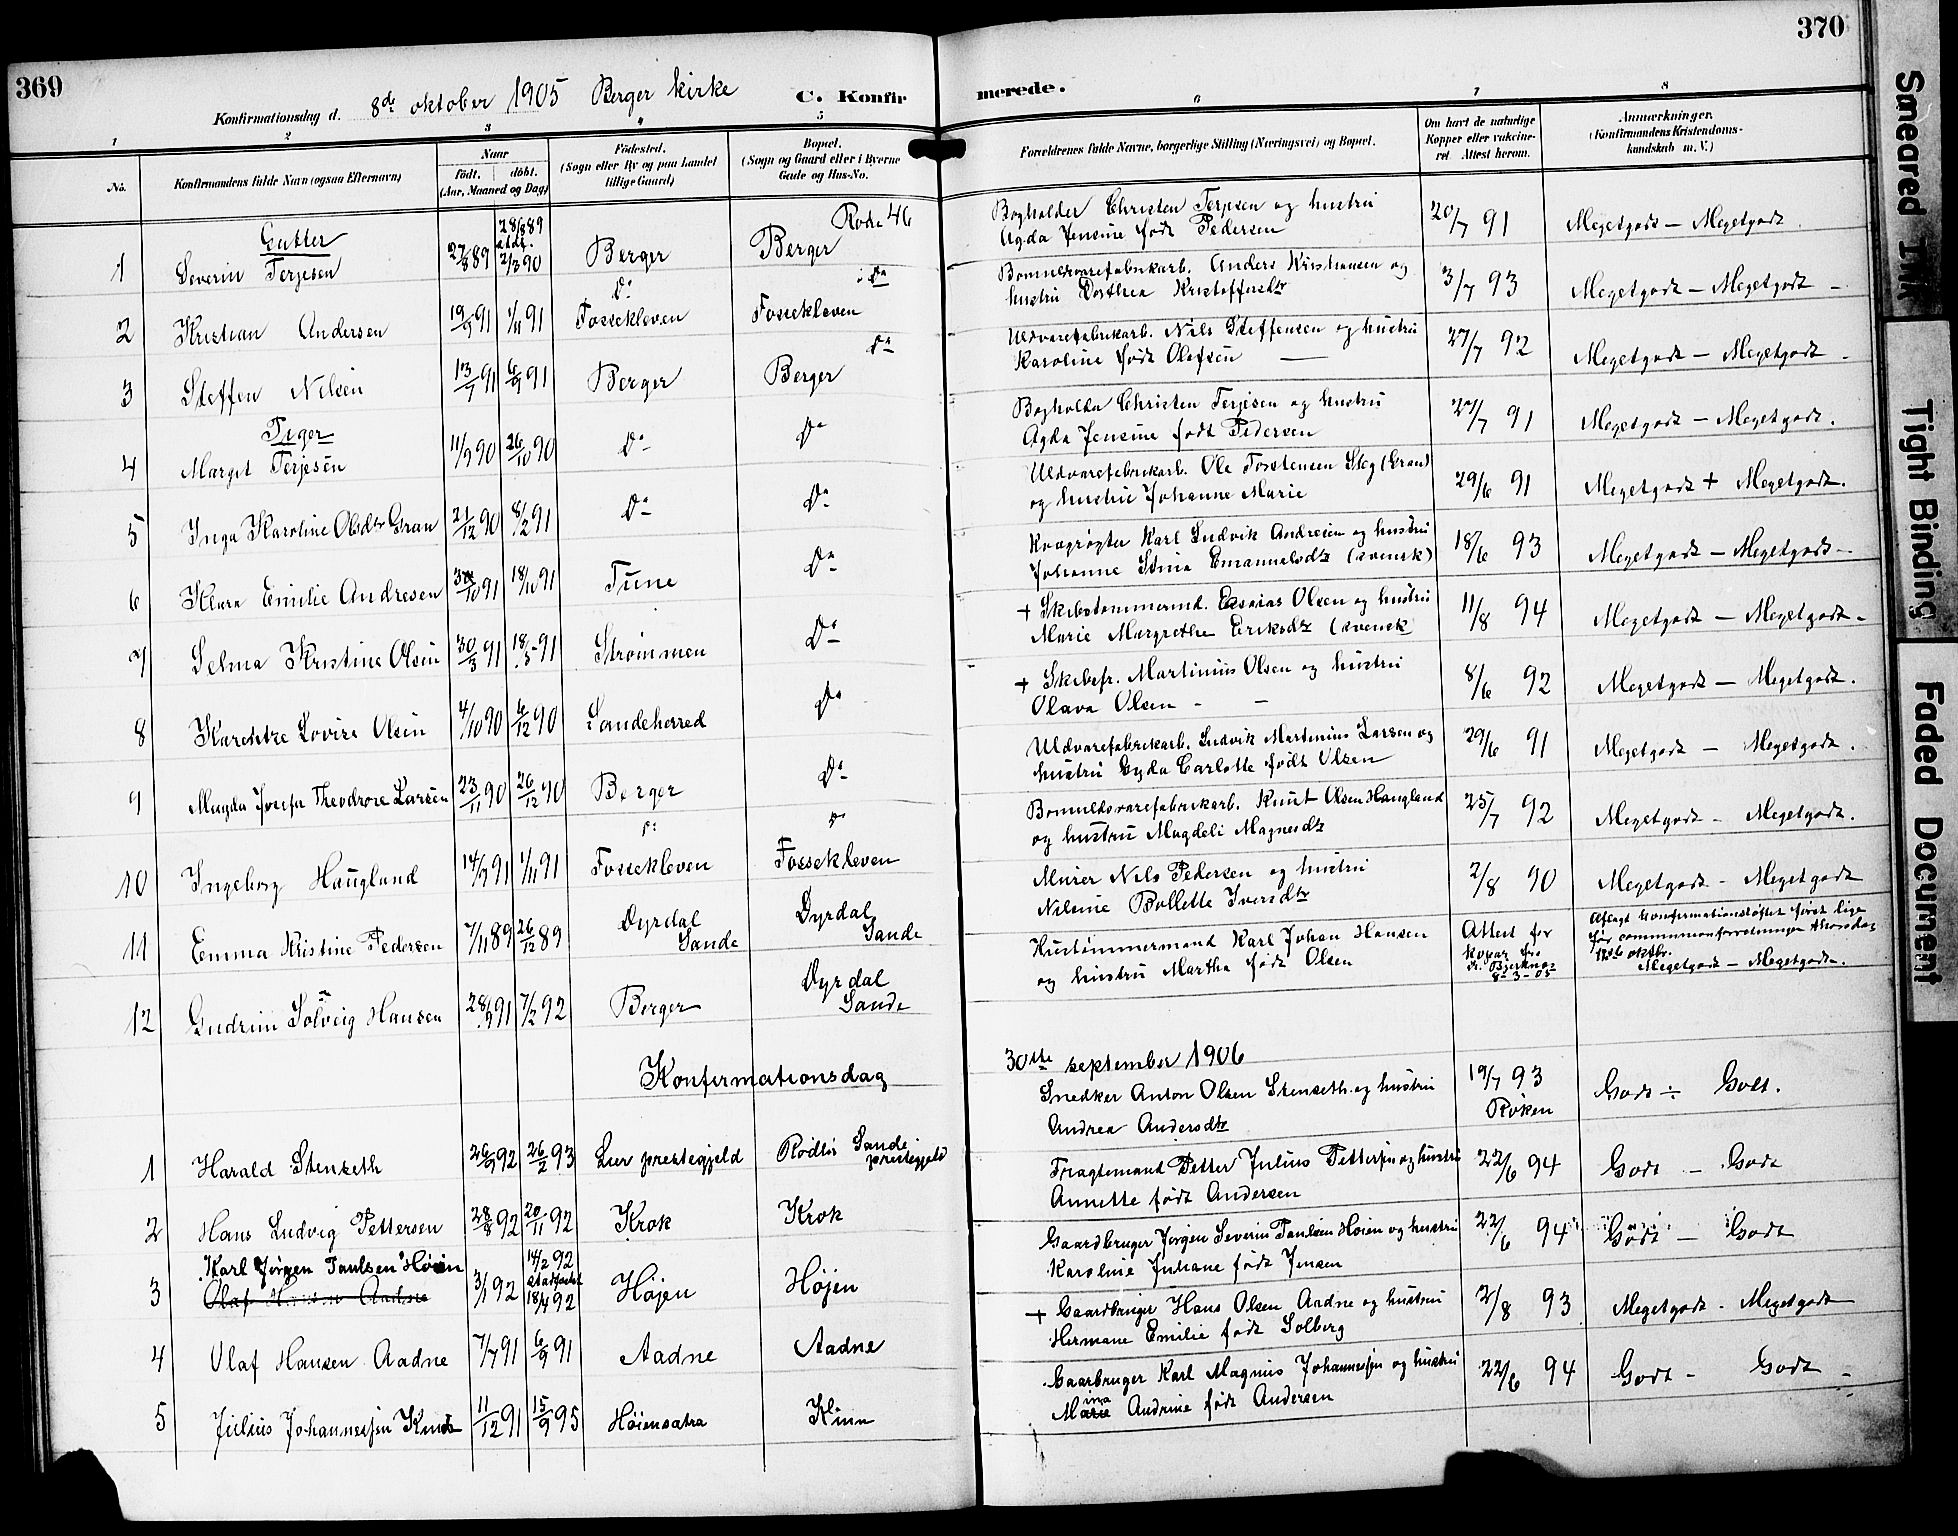 369
370
Konfirmationsdag d. 8de oktober 1905 Berger kirke C. Konfir
merede.
1 2 3 4 5
6 7 8
No.
Konfirmandens fulde Navn (ogsaa Efternavn)
Naar
født. døbt.
(Aar, Maaned og Dag)
Fødested.
(Sogn eller By og paa Landet
tillige Gaard)
Bopæl.
(Sogn og Gaard eller i Byerne
Gade og Hus-No.
Forældrenes fulde Navne, borgerlige Stilling (Næringsvei) og Bopæl.
Om havt de naturlige
Kopper eller vakcine-
ret. Attest herom.
Anmærkninger.
(Konfirmandens Kristendoms-
kundskab m. V.)
Gutter
1 Severin Terjesen 27/8 89 28/8 89 stdf. 2/3 90 Berger Rode 46 Berger
Bogholder Christen Terjesen og hustru
Agda Jensine født Pedersen
20/7 91 Megetgodt – Megetgodt.
2 Kristian Andersen 19/9 91 1/11 91 Do Fossekleven Do Fossekleven
Bomuldsvarefabrikarb. Anders Kristiansen og
hustru Dorthea Kristoffersdtr
3/7 93 Megetgodt – Megetgodt –
3 Steffen Nilsen 13/7 91 6/9 91 Berger Do Berger
Uldvarefabrikarb. Nils Steffensen og hustru
Karoline født Olefsen —
27/7 92 Megetgodt – Megetgodt.
Piger
4 Margit Terjesen 11/9 90 26/10 90 Do Do
Bogholder Christen Terjesen og hustru
Agda Jensine født Pedersen
27/7 91 Megetgodt – Megetgodt.
5 Inga Karoline Olsdtr Gran 21/12 90 8/2 91 Do Do
Uldvarefabrikarb. Ole Torstensen Steg (Gran)
og hustru Johanne Marie
29/6 91 Megetgodt + Megetgodt.
6 Klara Emilie Andresen /10 91 18/10 91 Tune Do
Kvægrøgter Karl Ludvik Andresen og hustru
Johanne Stina Emanuelsdtr (svensk)
18/6 93 Megetgodt – Megetgodt –
7 Selma Kristine Olsen 30/3 91 18/5 91 Strømmen Do
+ Skibstømmermd. Essaias Olsen og hustru
Marie Margrethe Eriksdtr (svensk)
11/8 94 Megetgodt – Megetgodt –
8 Lovise Olsen 4/10 90 6/12 90 Sandeherred Do
+ Skibsfr. Martinius Olsen og hustru
Olava Olsen - -
8/6 92 Megetgodt – Megetgodt.
9 Magda Josefa Theodore Larsen 23/11 90 26/12 90 Berger Do
Uldvarefabrikarb. Ludvik Martinius Larsen og
hustru Gyda Carlotte født Olsen
29/6 91 Megetgodt – Megetgodt.
10 Ingeborg Haugland 14/9 91 1/11 91 Do Fossekleven Do Fossekleven
Bomuldsvarefabrikarb. Knut Olsen Haugland
og hustru Magdeli Magnesdtr
25/7 92 Megetgodt – Megetgodt.
11 Emma Kristine Pedersen 7/11 89 26/12 89 Dyrdal Sande Dyrdal Sande
Murer Nils Pedersen og hustru
Nilsine Bollette Iversdtr
2/8 90 Megetgodt – Megetgodt
12 Gudrun Solveig Hansen 28/9 91 7/2 92 Berger Dyrdal Sande
Hustømmermand Karl Johan Hansen
og hustru Martha født Olsen
Attest for
kopar fra
dr. Bjerknes
8-3-05
Aflagt konfirmationsløftet først lige
før communionforretningen thorsdag
12te oktbr.
Megetgodt – Megetgodt.
Konfirmationsdag 30te september 1906
1 Harald Stenseth 26/9 92 26/2 93 Lier prestegjeld Rødtei Sande prestegjeld
Snedker Anton Olsen Stenseth og hustru
Andrea Andersdtr
19/7 93
Røken
Godt ÷ Godt.
2 Hans Ludvig Pettersen 28/8 92 20/11 92 Krok Krok
Fragtemand Petter Julius Pettersen og hustru
Annette født Andersen
22/6 94 Godt – Godt
3 Karl Jørgen Paulsen Høien
Olaf Hansen Aadne
3/1 92 14/2 92 stadfæstet 18/4 92 Højen Højen
Gaardbruger Jørgen Severin Paulsen Høien og hustru
Karoline Juliane født Jensen
22/6 94 Godt – Godt
4 Olaf Hansen Aadne 7/7 91 6/9 91 Aadne Aadne
+ Gaardbruger Hans Olsen Aadne og hustru
Hermane Emilie født Solberg
2/8 93 Megetgodt – Megetgodt
5 Julius Johannessen 11/12 91 15/9 95 Høiensætra
Gaarbruger Karl Magnus Johannessen og hustru
Marie ina Andrine født Andersen
22/6 94 Godt – Godt –
Smeared Ink
Tight Binding
Faded Document